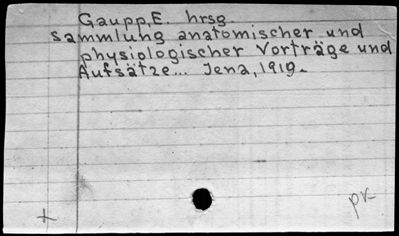 Gaupp, E. hrsg.
Sammlung anatomischer und
physiologischer Vorträge und
Aufsätze... Jena, 1910.
pr